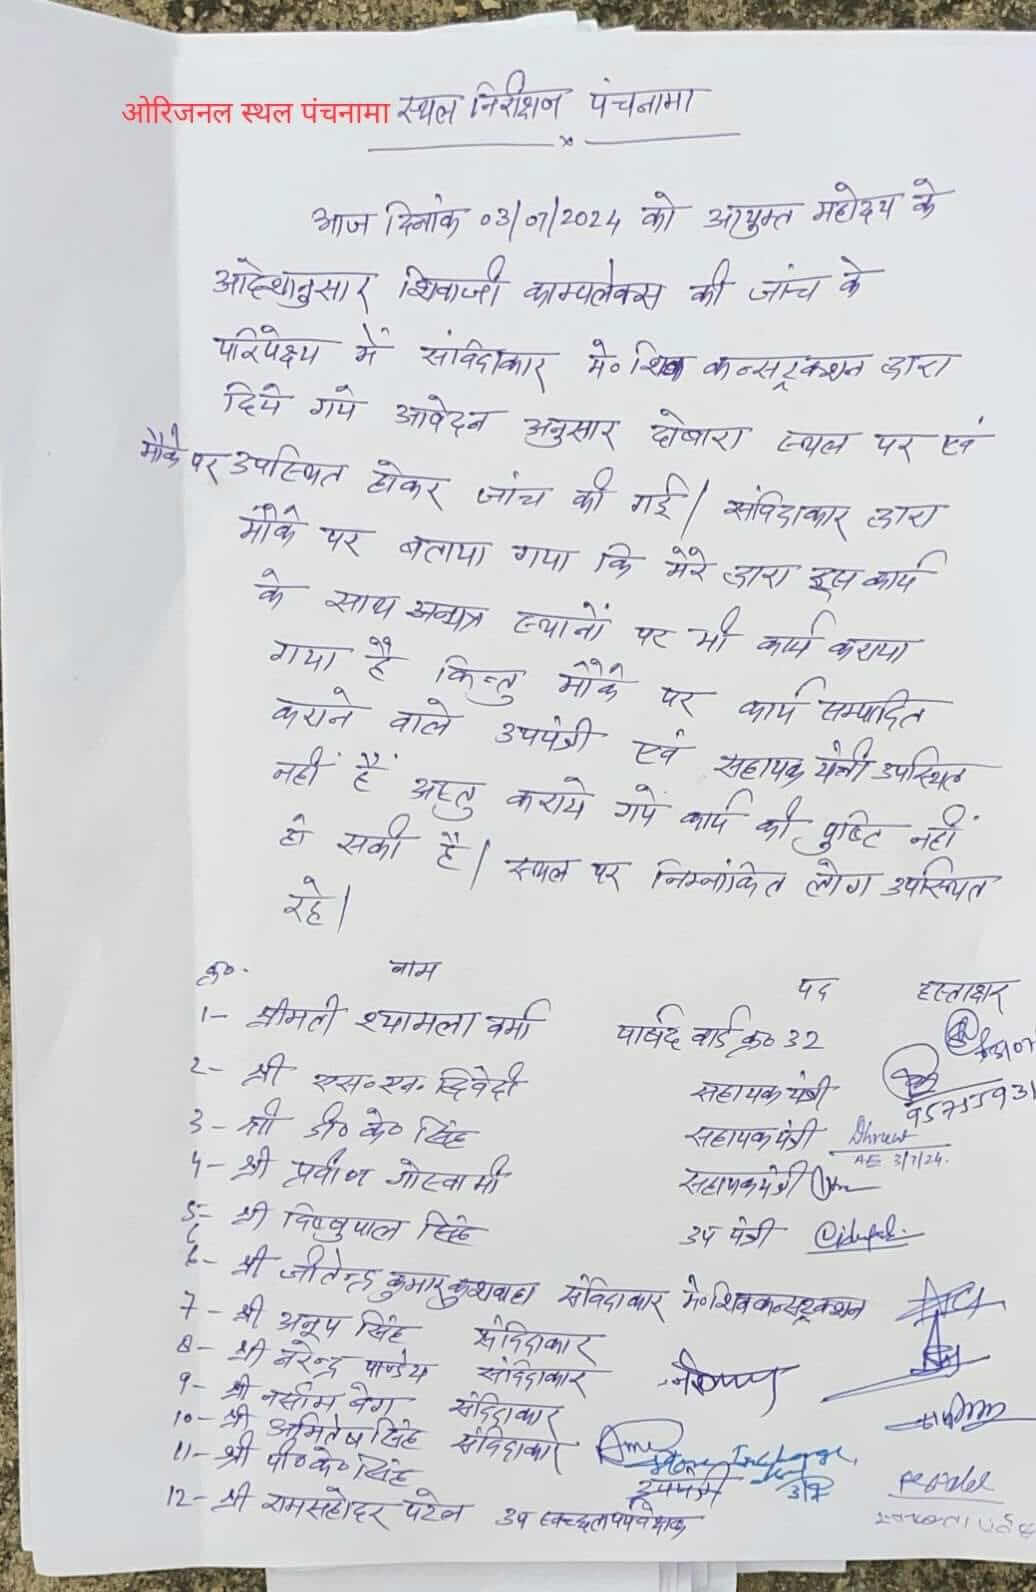 ओरिजनल स्थल पंचनामा स्थल निरीक्षण पंचनामा
आज दिनांक 03/07/2024 को आयुक्त महोदय के
आदेशानुसार शिवाजी काम्पलेक्स की जांच के
परिपेक्ष्य में संविदाकार मे० शिव कन्सट्रक्शन द्वारा
दिये गये आवेदन अनुसार दोबारा स्थल पर एवं
मौके पर उपस्थित होकर जांच की गई। संविदाकार द्वारा
मौके पर बताया गया कि मेरे द्वारा इस कार्य
के साथ अन्यत्र स्थानों पर भी कार्य कराया
गया है किन्तु मौके पर कार्य सम्पादित
कराने वाले उपयंत्री एवं सहायक यंत्री उपस्थित
नहीं हैं अस्तु कराये गये कार्य की पुष्टि नहीं
हो सकी है। स्थल पर निम्नांकित लोग उपस्थित
रहे।
क्र०. नाम पद हस्ताक्षर
1- श्रीमती श्यामला वर्मा पार्षद वार्ड क्र० 32
2- श्री एस. एन. द्विवेदी सहायक यंत्री
3- श्री डी० के० सिंह सहायक यंत्री Dhruw
AE 3/7/24.
4- श्री प्रवीण गोस्वामी सहायक यंत्री
5- श्री विष्णुपाल सिंह उप यंत्री
6- श्री जीतेन्द्र कुमार कुशवाहा संविदाकार मे० शिव कन्सट्रक्शन
7- श्री अनूप सिंह संविदाकार
8- श्री नरेन्द्र पाण्डेय संविदाकार
9- श्री नसीम बेग संविदाकार
10- श्री अमितेष सिंह संविदाकार
11- श्री पी० के० सिंह उपयंत्री Zone Incharge 3/7
12- श्री रामसहोदर पटेल उप स्वच्छता पर्यवेक्षक